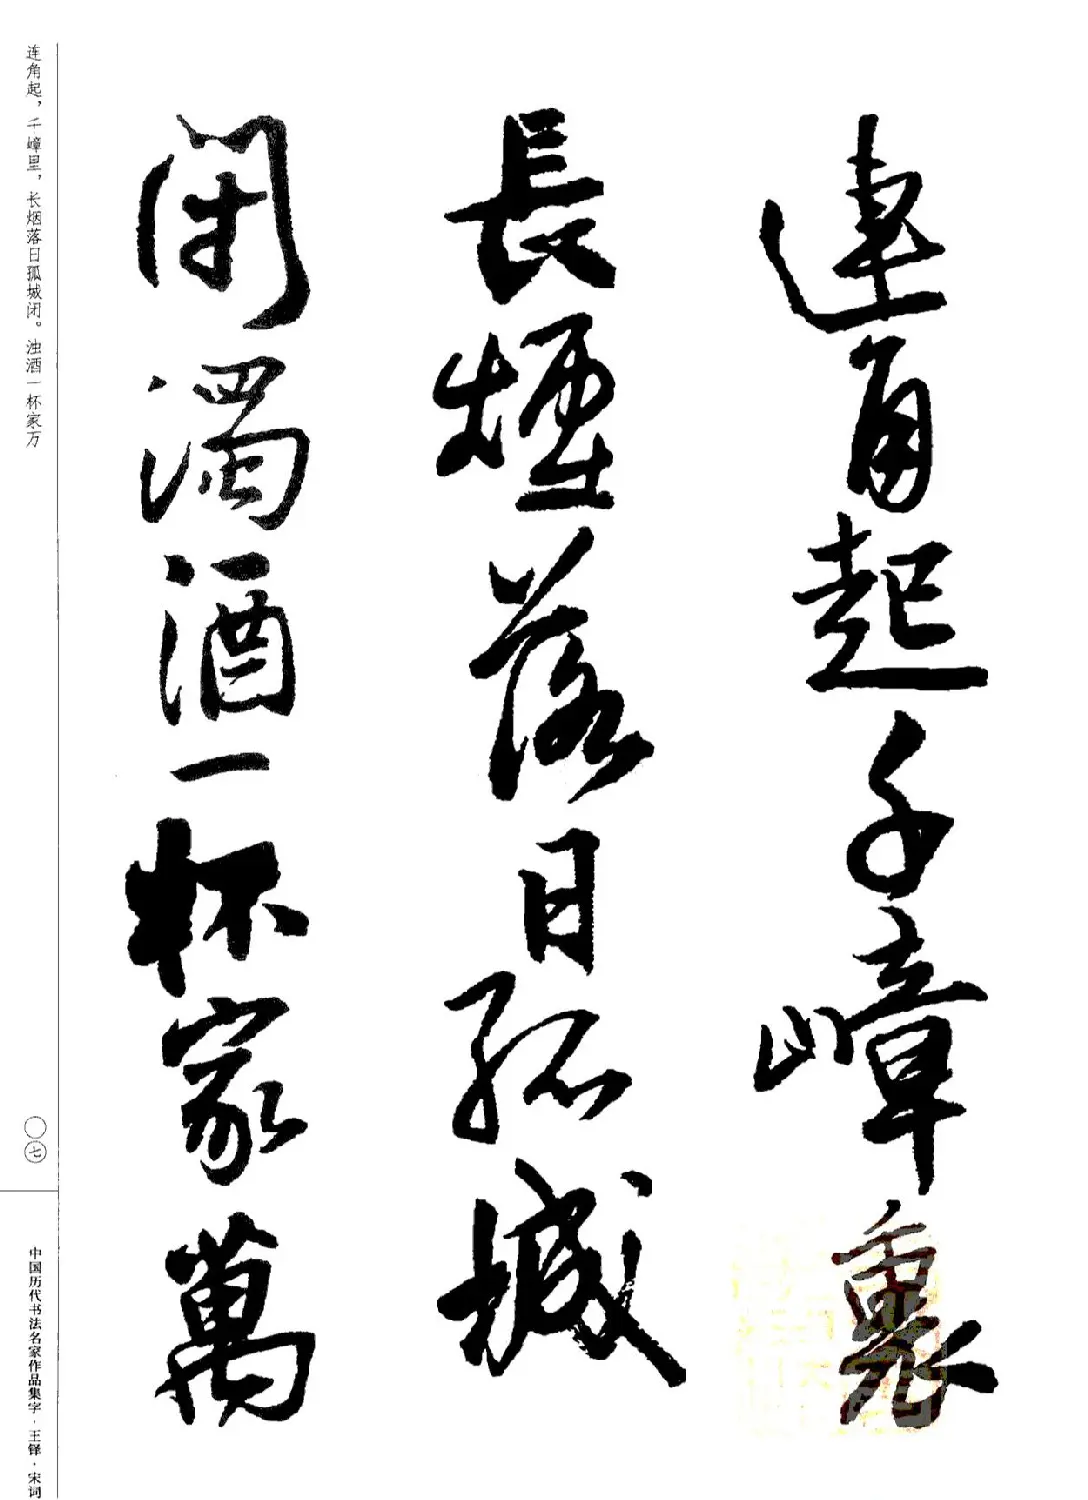 連角起千嶂裏
長煙落日孤城
閉濁酒一杯家萬
连角起，千嶂里，长烟落日孤城闭。浊酒一杯家万
〇七
中国历代书法名家作品集字·王铎·宋词